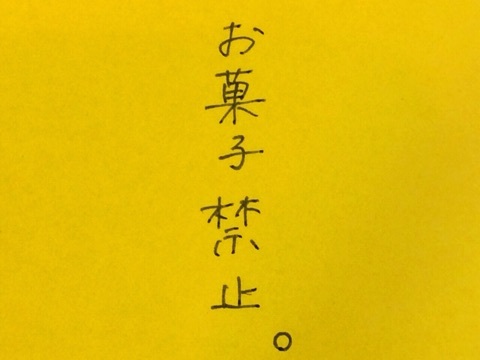 お菓子禁止。